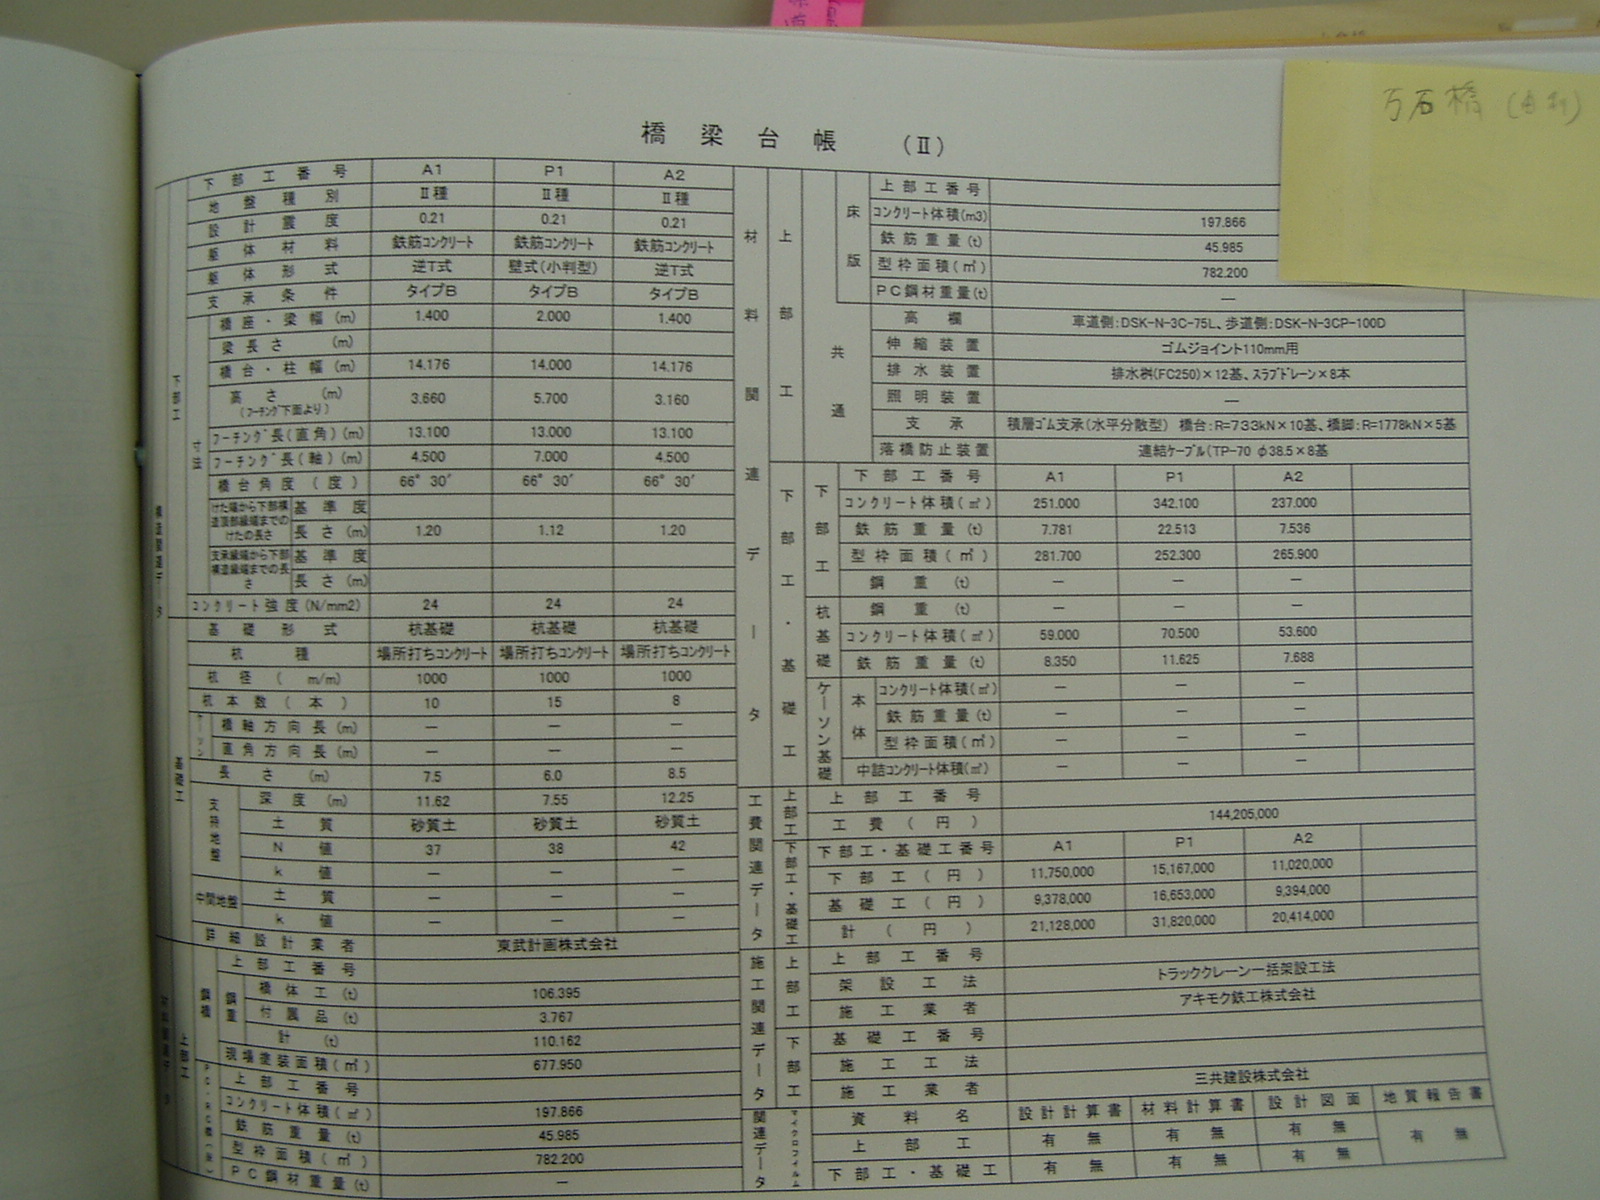 万石橋
橋梁台帳 (Ⅱ)
下部工番号 A1 P1 A2
地盤種別 Ⅱ種 Ⅱ種 Ⅱ種
設計震度 0.21 0.21 0.21
躯体材料 鉄筋コンクリート 鉄筋コンクリート 鉄筋コンクリート
躯体形式 逆T式 壁式(小判型) 逆T式
支承条件 タイプB タイプB タイプB
下部工
寸法
橋座・梁幅(m) 1.400 2.000 1.400
梁長さ(m)
橋台・柱幅(m) 14.176 14.000 14.176
高さ(m) (フーチング下面より) 3.660 5.700 3.160
フーチング長(直角)(m) 13.100 13.000 13.100
フーチング長(軸)(m) 4.500 7.000 4.500
橋台角度(度) 66°30′ 66°30′ 66°30′
けた端から下部構造頂部縁端までのけたの長さ 基準度
長さ(m) 1.20 1.12 1.20
支承縁端から下部構造縁端までの長さ 基準度
長さ(m)
コンクリート強度(N/mm2) 24 24 24
基礎工
基礎形式 杭基礎 杭基礎 杭基礎
杭種 場所打ちコンクリート 場所打ちコンクリート 場所打ちコンクリート
杭径(m/m) 1000 1000 1000
杭本数(本) 10 15 8
ケーソン
橋軸方向長(m) ― ― ―
直角方向長(m) ― ― ―
長さ(m) 7.5 6.0 8.5
支持地盤
深度(m) 11.62 7.55 12.25
土質 砂質土 砂質土 砂質土
N値 37 38 42
k値 ― ― ―
中間地盤
土質 ― ― ―
k値 ― ― ―
詳細設計業者 東武計画株式会社
上部工
鋼橋
上部工番号
鋼重
橋体工(t) 106.395
付属品(t) 3.767
計(t) 110.162
現場塗装面積(㎡) 677.950
上部工番号
コンクリート体積(㎥) 197.866
鉄筋重量(t) 45.985
型枠面積(㎡) 782.200
PC鋼材重量(t) ―
材料関連データ
上部工
共通
床版
上部工番号
コンクリート体積(m3) 197.866
鉄筋重量(t) 45.985
型枠面積(㎡) 782.200
PC鋼材重量(t) ―
高欄 車道側:DSK-N-3C-75L、歩道側:DSK-N-3CP-100D
伸縮装置 ゴムジョイント110mm用
排水装置 排水桝(FC250)×12基、スラブドレーン×8本
照明装置 ―
支承 積層ゴム支承(水平分散型) 橋台:R=733kN×10基、橋脚:R=1778kN×5基
落橋防止装置 連結ケーブル(TP-70 φ38.5×8基
下部工・基礎工
下部工
下部工番号 A1 P1 A2
コンクリート体積(㎥) 251.000 342.100 237.000
鉄筋重量(t) 7.781 22.513 7.536
型枠面積(㎡) 281.700 252.300 265.900
鋼重(t) ― ― ―
杭基礎
鋼重(t) ― ― ―
コンクリート体積(㎥) 59.000 70.500 53.600
鉄筋重量(t) 8.350 11.625 7.688
ケーソン基礎
本体
コンクリート体積(㎥) ― ― ―
鉄筋重量(t) ― ― ―
型枠面積(㎡) ― ― ―
中詰コンクリート体積(㎥) ― ― ―
工費関連データ
上部工
上部工番号
工費(円) 144,205,000
下部工・基礎工
下部工・基礎工番号 A1 P1 A2
下部工(円) 11,750,000 15,167,000 11,020,000
基礎工(円) 9,378,000 16,653,000 9,394,000
計(円) 21,128,000 31,820,000 20,414,000
施工関連データ
上部工
上部工番号
架設工法 トラッククレーン一括架設工法
施工業者 アキモク鉄工株式会社
下部工
基礎工番号
施工工法
施工業者 三共建設株式会社
マイクロフィルム関連データ
資料名 設計計算書 材料計算書 設計図面 地質報告書
上部工 有 無 有 無 有 無 有 無
下部工・基礎工 有 無 有 無 有 無